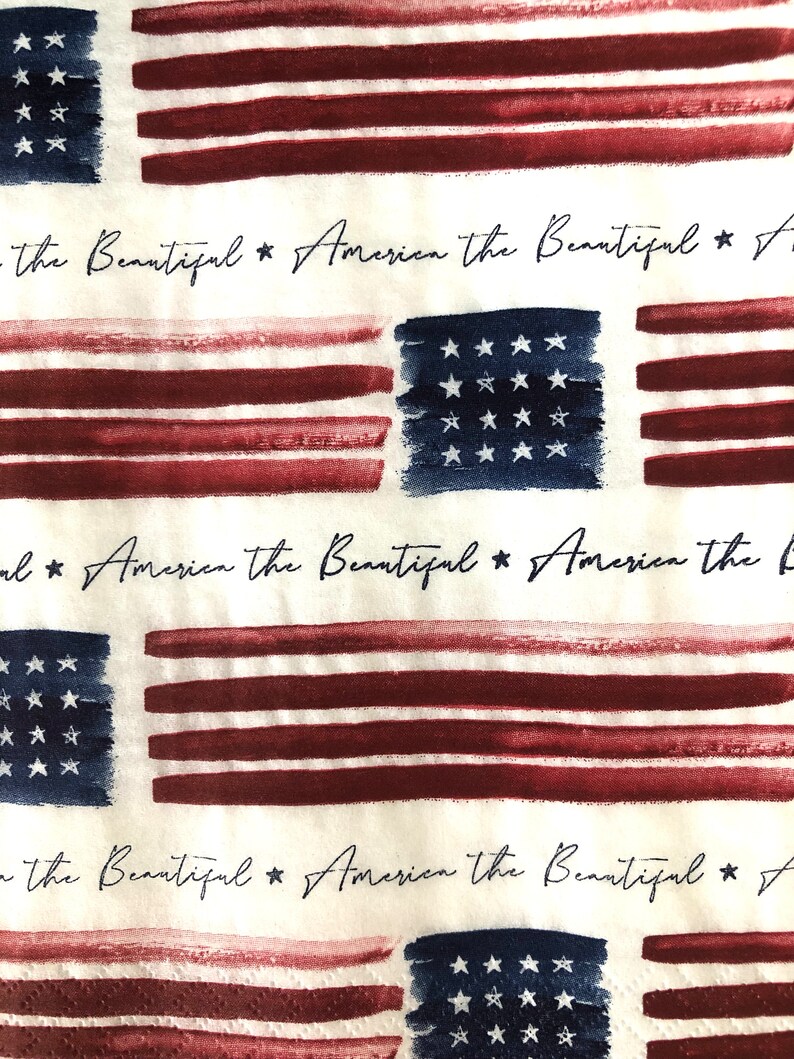 the Beautiful ★ America the Beautiful ★
★ America the Beautiful ★ America the
the Beautiful ★ America the Beautiful ★